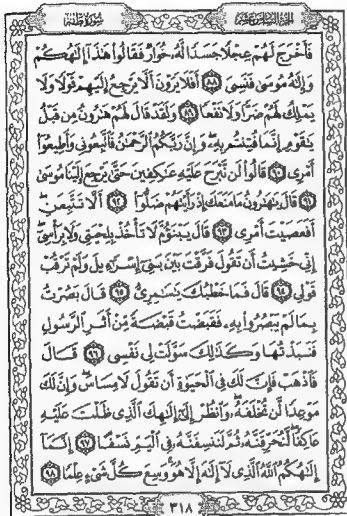 الجزء السادس عشر
سورة طه
فَأَخْرَجَ لَهُمْ عِجْلًا جَسَدًا لَّهُ خُوَارٌ فَقَالُوا هَٰذَا إِلَٰهُكُمْ
وَإِلَٰهُ مُوسَىٰ فَنَسِيَ ٨٨ أَفَلَا يَرَوْنَ أَلَّا يَرْجِعُ إِلَيْهِمْ قَوْلًا وَلَا
يَمْلِكُ لَهُمْ ضَرًّا وَلَا نَفْعًا ٨٩ وَلَقَدْ قَالَ لَهُمْ هَٰرُونُ مِن قَبْلُ
يَٰقَوْمِ إِنَّمَا فُتِنتُم بِهِۦ وَإِنَّ رَبَّكُمُ الرَّحْمَٰنُ فَاتَّبِعُونِي وَأَطِيعُوا
أَمْرِي ٩٠ قَالُوا لَن نَّبْرَحَ عَلَيْهِ عَٰكِفِينَ حَتَّىٰ يَرْجِعَ إِلَيْنَا مُوسَىٰ
٩١ قَالَ يَٰهَٰرُونُ مَا مَنَعَكَ إِذْ رَأَيْتَهُمْ ضَلُّوا ٩٢ أَلَّا تَتَّبِعَنِ
أَفَعَصَيْتَ أَمْرِي ٩٣ قَالَ يَبْنَؤُمَّ لَا تَأْخُذْ بِلِحْيَتِي وَلَا بِرَأْسِي
إِنِّي خَشِيتُ أَن تَقُولَ فَرَّقْتَ بَيْنَ بَنِي إِسْرَٰٓءِيلَ وَلَمْ تَرْقُبْ
قَوْلِي ٩٤ قَالَ فَمَا خَطْبُكَ يَٰسَٰمِرِيُّ ٩٥ قَالَ بَصُرْتُ
بِمَا لَمْ يَبْصُرُوا بِهِۦ فَقَبَضْتُ قَبْضَةً مِّنْ أَثَرِ الرَّسُولِ
فَنَبَذْتُهَا وَكَذَٰلِكَ سَوَّلَتْ لِي نَفْسِي ٩٦ قَالَ
فَاذْهَبْ فَإِنَّ لَكَ فِي الْحَيَوٰةِ أَن تَقُولَ لَا مِسَاسَ وَإِنَّ لَكَ
مَوْعِدًا لَّن تُخْلَفَهُۥ وَانظُرْ إِلَىٰ إِلَٰهِكَ الَّذِي ظَلْتَ عَلَيْهِ
عَاكِفًا لَّنُحَرِّقَنَّهُۥ ثُمَّ لَنَنسِفَنَّهُۥ فِي الْيَمِّ نَسْفًا ٩٧ إِنَّمَا
إِلَٰهُكُمُ اللَّهُ الَّذِي لَا إِلَٰهَ إِلَّا هُوَ وَسِعَ كُلَّ شَيْءٍ عِلْمًا ٩٨
٣١٨